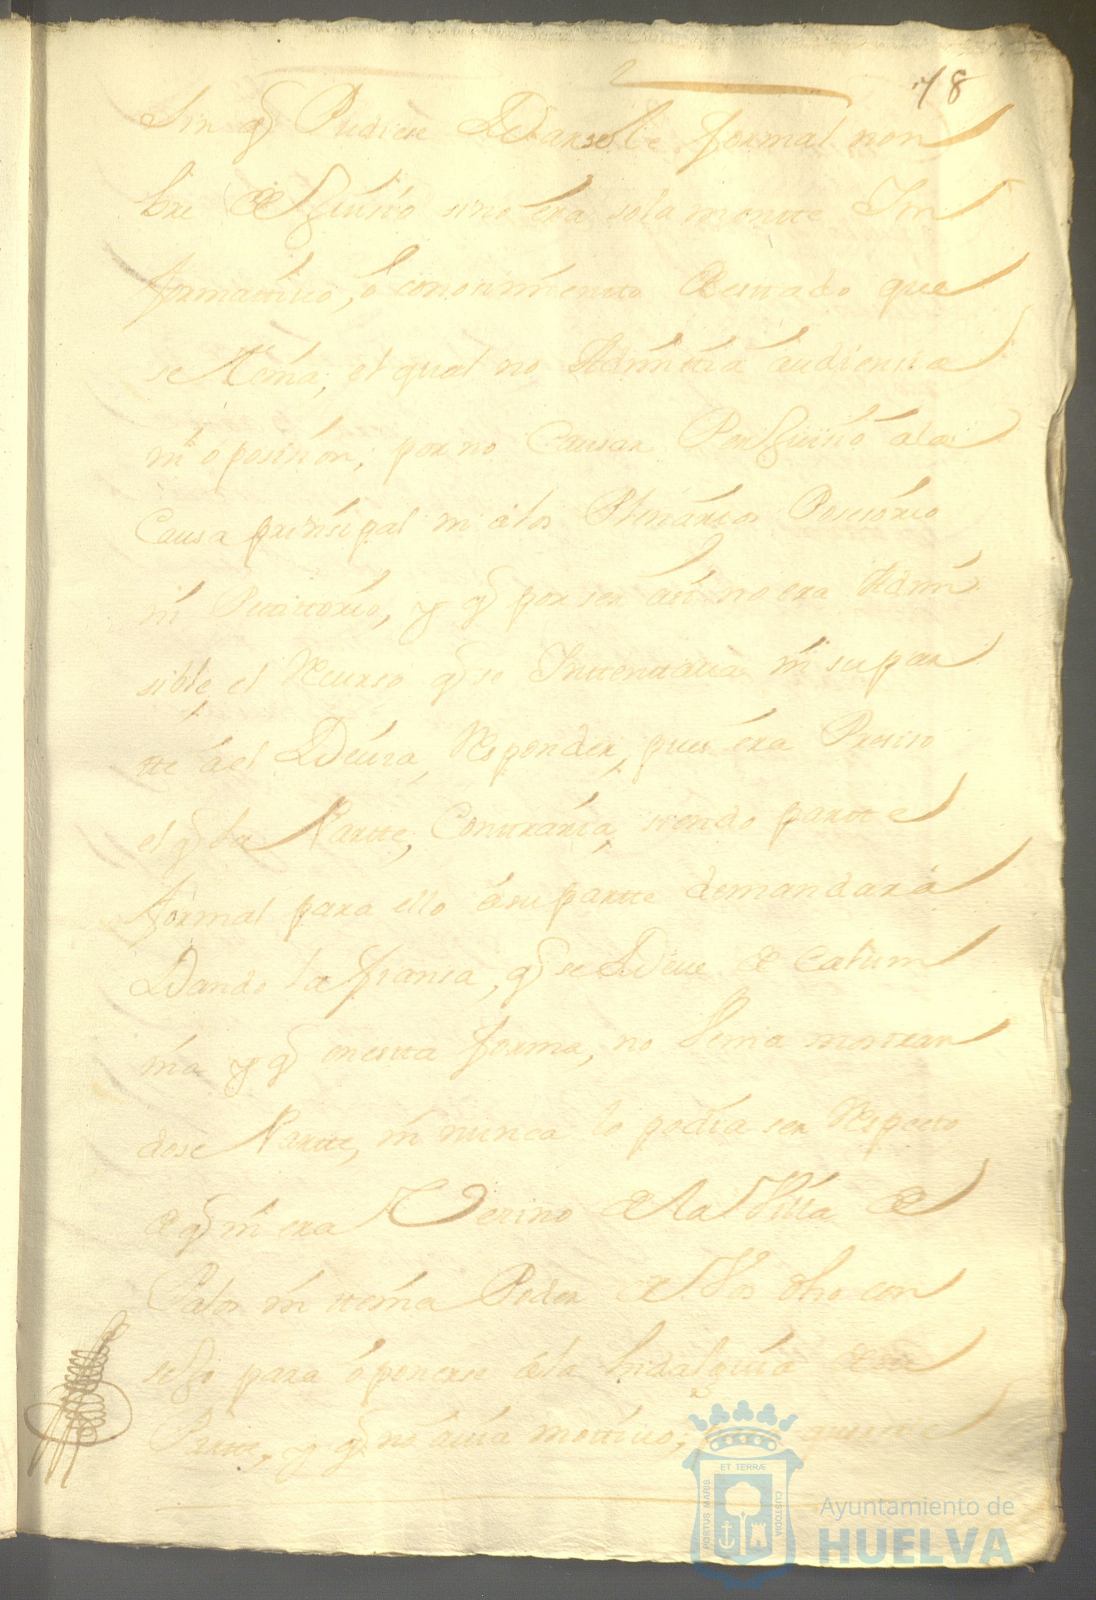 78
Sin q̃ Pudiese Darsele formal non
bre de Juisio sino era sola mentte Yn
formattivo, ó conosimientto Resuado que
se tenia, el qual no Admitia áudiensia
ni oposision, por no Causar Perjuisio ala
Causa prinsipal ni álos Plenarios Posesorio
ni Petittorio, y q̃ por ser así no era Admi
sible, el Recurso q̃ se Yntentava ni su par
tte á el Devia Responder, pues éra Presiso
el q̃ la Partte, Conttraria, siendo partte
formal para ello ásu partte demandara
Dando la fiansa, q̃ se Deve de Calum
nia y q̃ en estta forma, no Venia mostran
dose Partte, ni nunca lo podia ser Respecto
de q̃ ni era Vesino de la Villa de
Palos ni ttenia Poder de Vos dho con
sejo para óponerse ála hidalguia de su
Partte, y q̃ no ávia mottivo;
PORTUS MARIS
ET TERRÆ
CUSTODIA
Ayuntamiento de
HUELVA